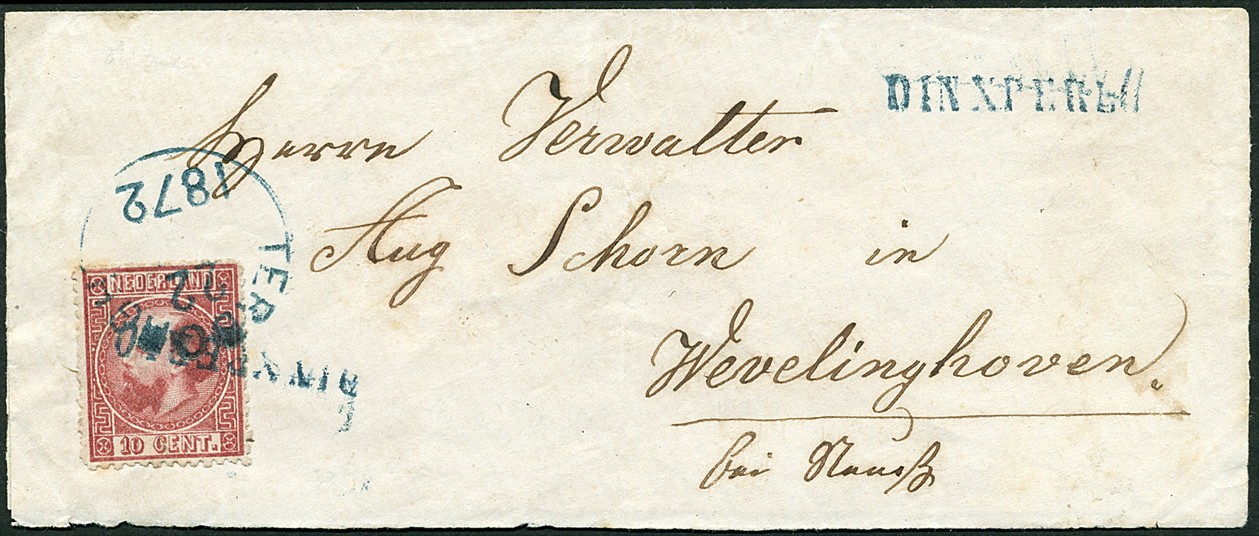 DINXPERLO
Herrn Verwalter
1872
Aug Schorn in
TER
NEDERLAND
Wevelinghoven.
10 CENT.
bei Neuß